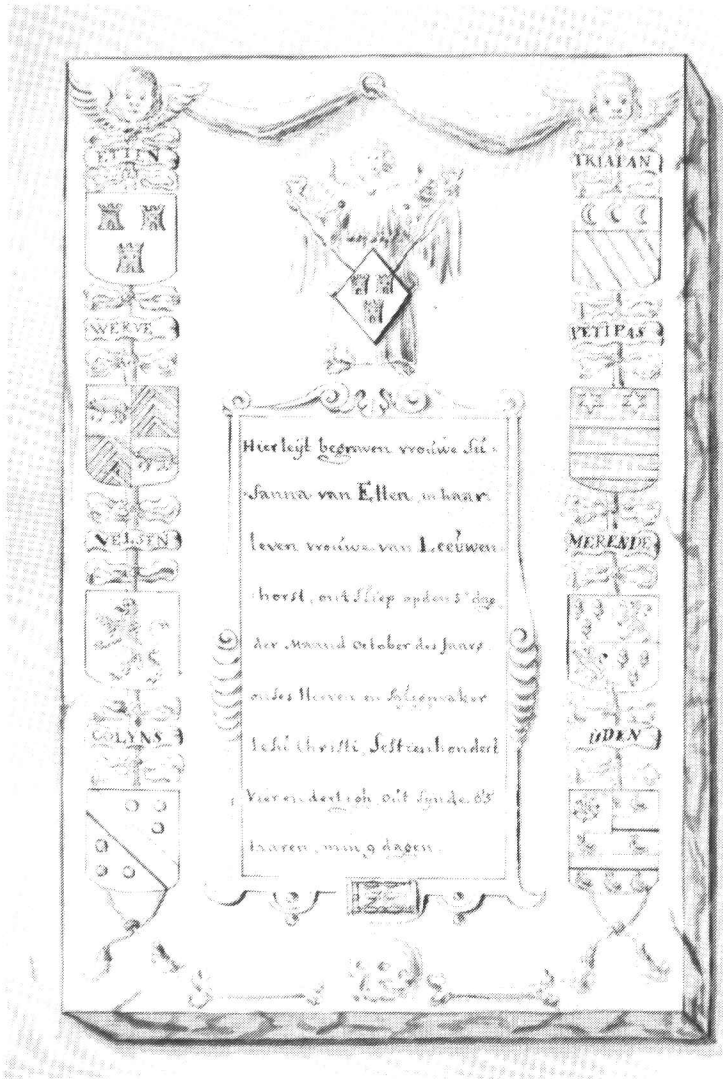 ETTEN
WERVE
VELSEN
COLYNS
TRIAPAN
PETIPAS
MERENDE
UDEN
Hier leijt begraven vrouwe Su-
sanna van Etten, in haar
leven vrouwe van Leeuwen-
horst, ontsliep op den 5e dag
der Maand October des Jaars
onses Heeren en Saligmaker
Jesu Christi, Sestienhondert
Vier en dertigh out synde 65
Jaaren, min 9 dagen.